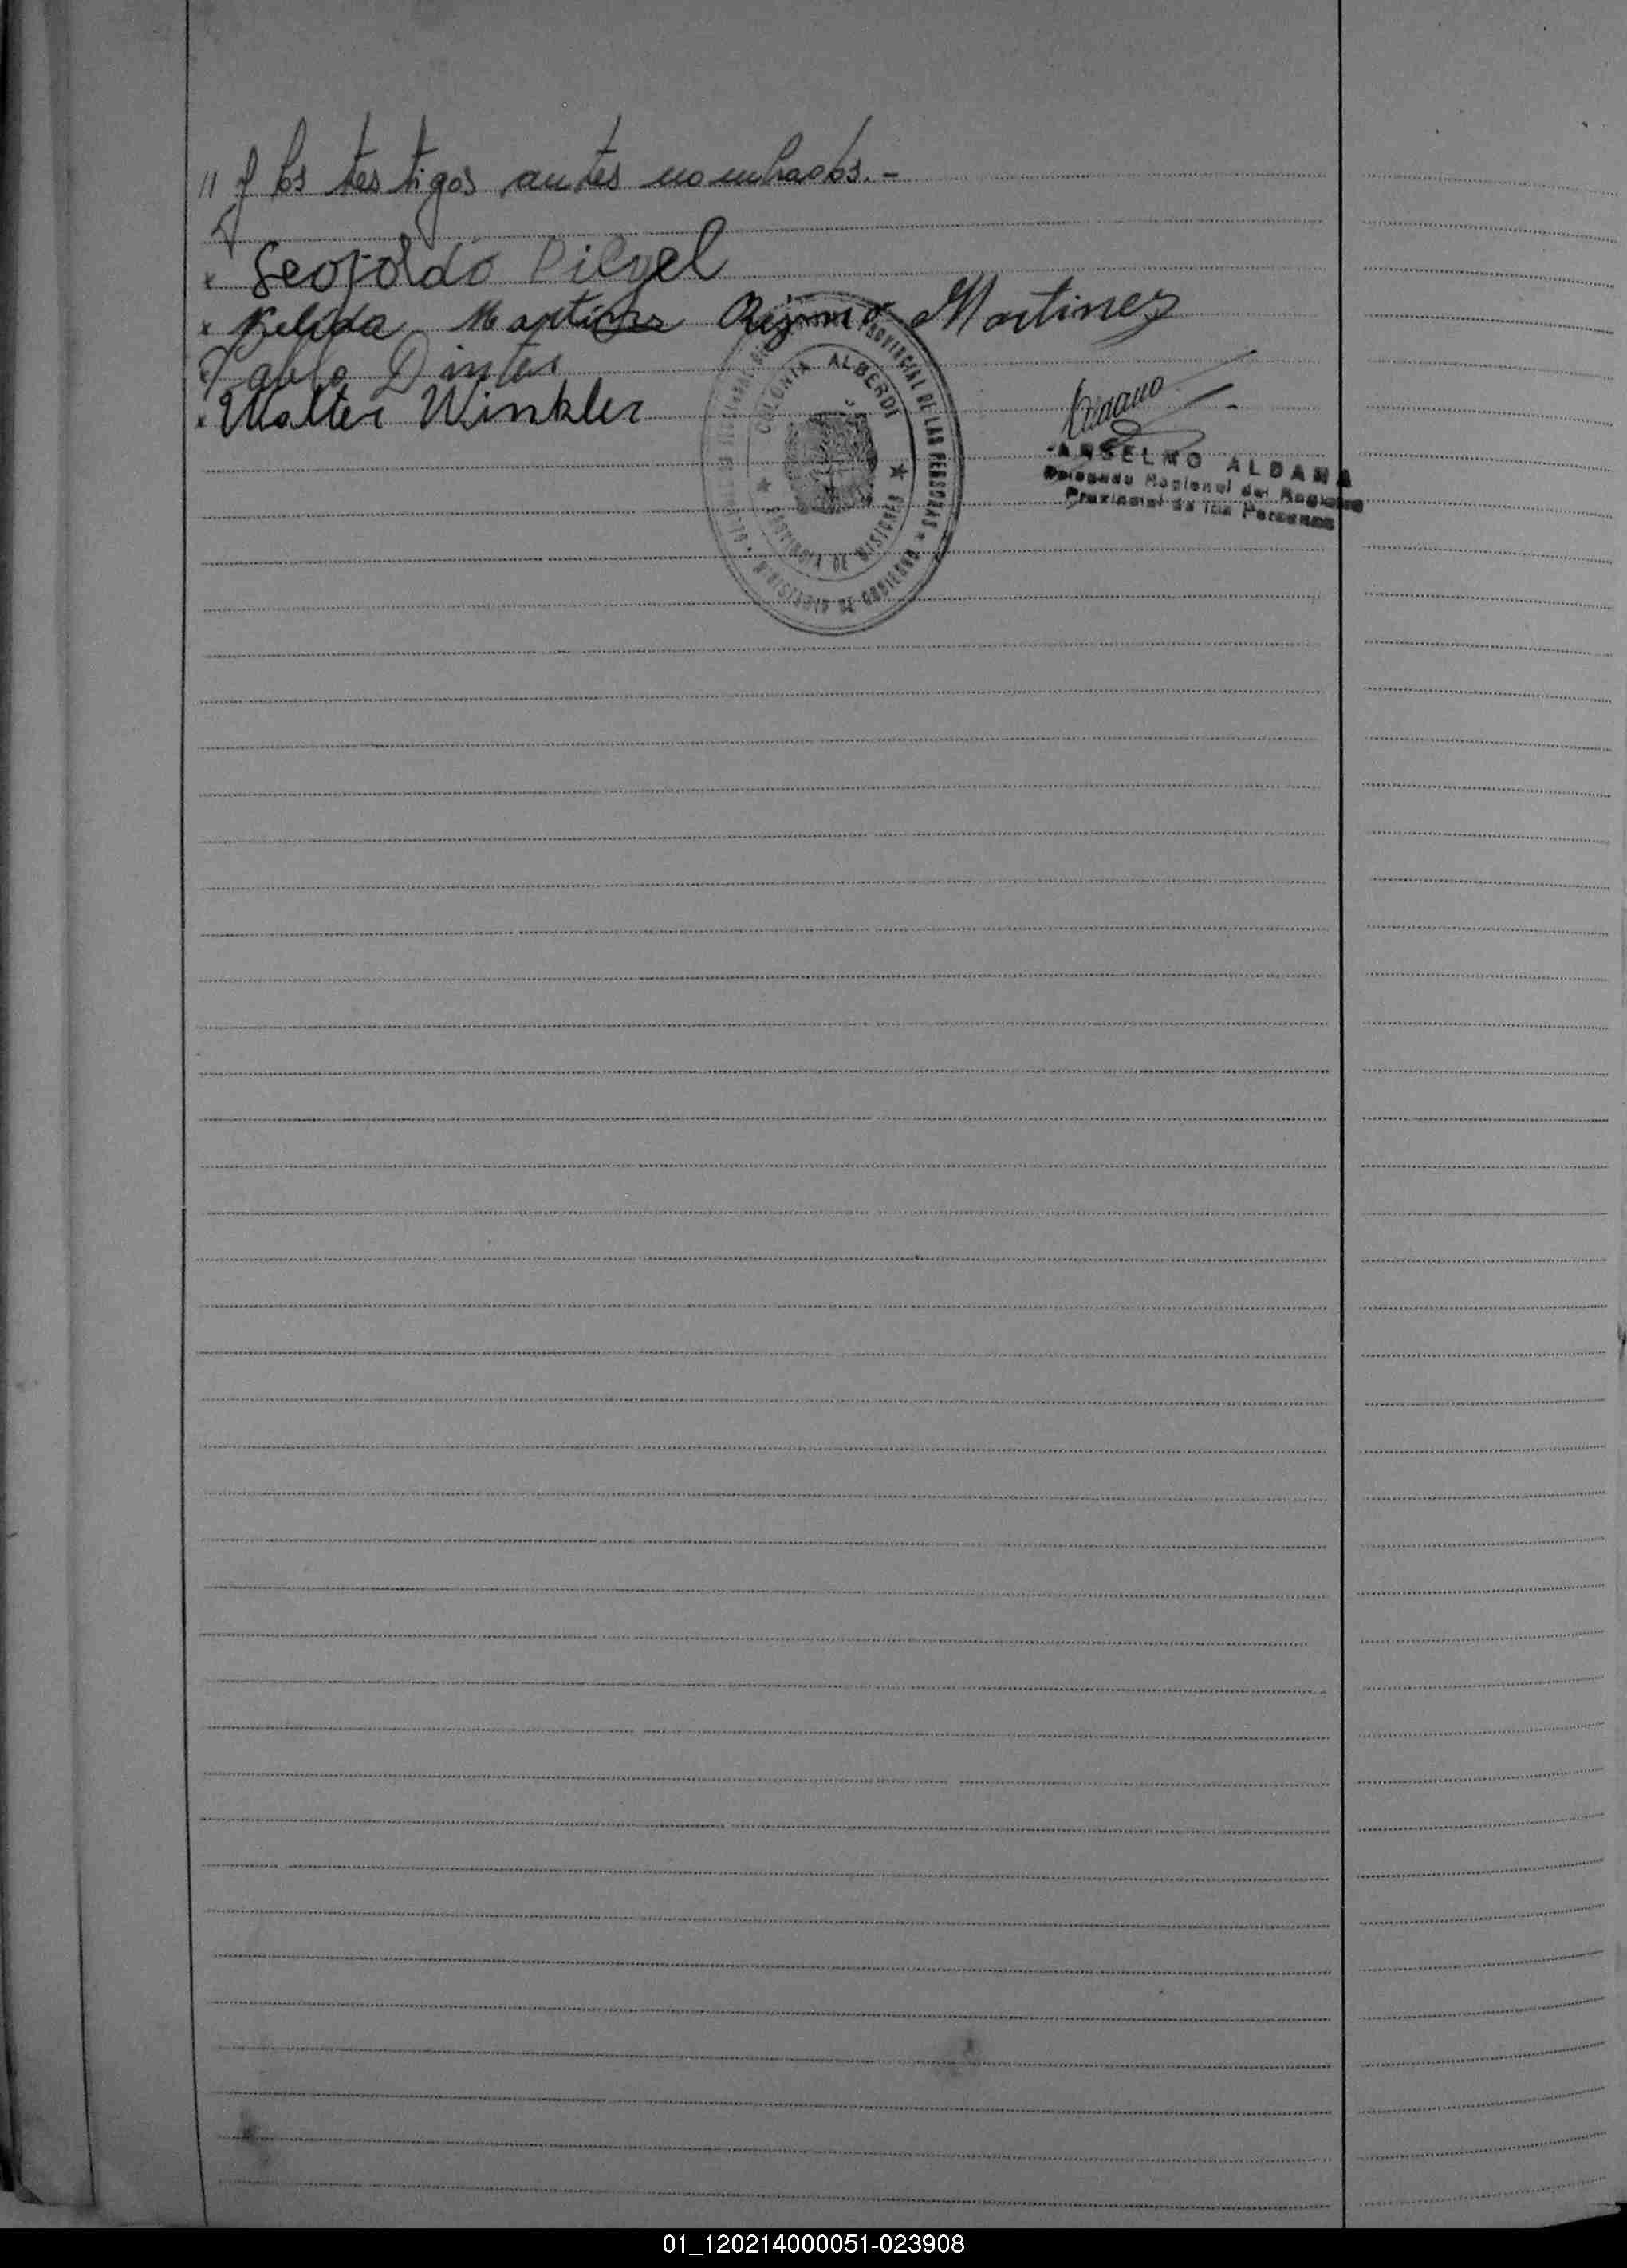 // y los testigos antes nombrados.-
x Leopoldo Pilgel
x Nelida Martinez Martinez
Pablo Dinter
x Walter Winkler
PROVINCIAL DE LAS PERSONAS
MINISTERIO DE GOBIERNO
COLONIA ALBERDI
PROVINCIA DE MISIONES
ANSELMO ALDANA
Delegado Regional del Registro
Provincial de las Personas
01_120214000051-023908